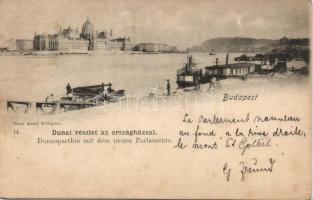 Budapest
Divald Antal, Budapest.
14.
Dunai részlet az országházzal.
Donauparthie mit dem neuen Parlamente
Le Parlement nouveau
au fond, à la rive droite,
le mont St Gellert.
G. Freund